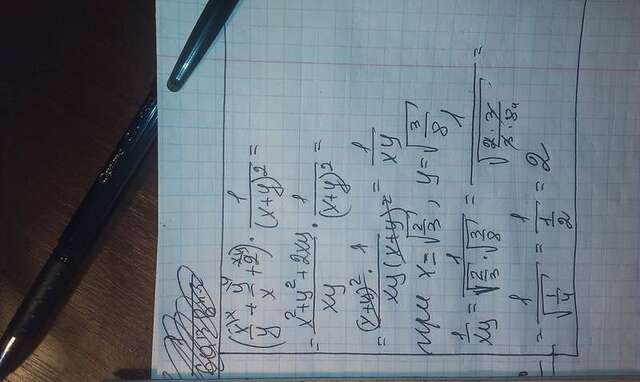 (x/y + y/x + 2) · 1/(x+y)² =
= (x² + y² + 2xy)/xy · 1/(x+y)² =
= (x+y)² · 1/xy(x+y)² = 1/xy
при x = √(2/3), y = √(3/8)
1/xy = 1/(√(2/3) · √(3/8)) = 1/√(2·3/3·8₄) =
= 1/√(1/4) = 1/(1/2) = 2